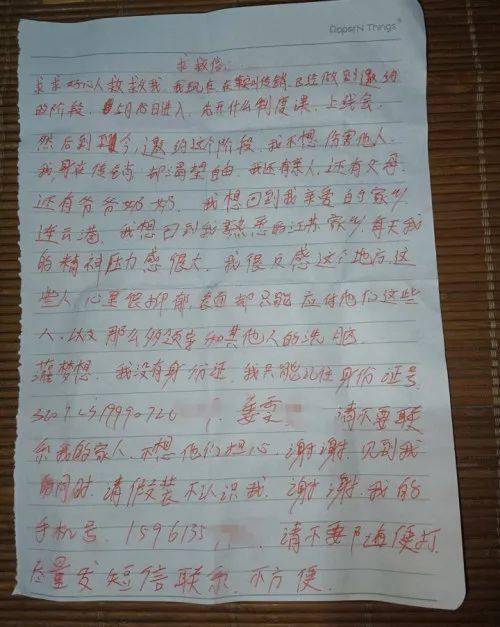 PaperN Things
求救信
求求好心人救救我,我现在在鞍山传销,已经做到邀约
的阶段,5月18日进入,先开什么制度课,上线会,
然后到现今,邀约这个阶段,我不想伤害他人,
我身在传销却渴望自由,我还有亲人,还有父母,
还有爷爷奶奶,我想回到我亲爱的家乡
连云港,我想回到我熟悉的江苏家乡,每天我
的精神压力感很大,我很反感这个地方,这
些人,心里很抑郁,表面却只能应付他们这些
人,以及那么多领导和其他人的洗脑
灌梦想,我没有身份证,我只能记住身份证号
320 19990720 姜雯 请不要联
系我的家人,不想他们担心,谢谢,见到我
的同时,请假装不认识我,谢谢,我的
手机号,1596135 请不要随便打
尽量发短信联系,不方便